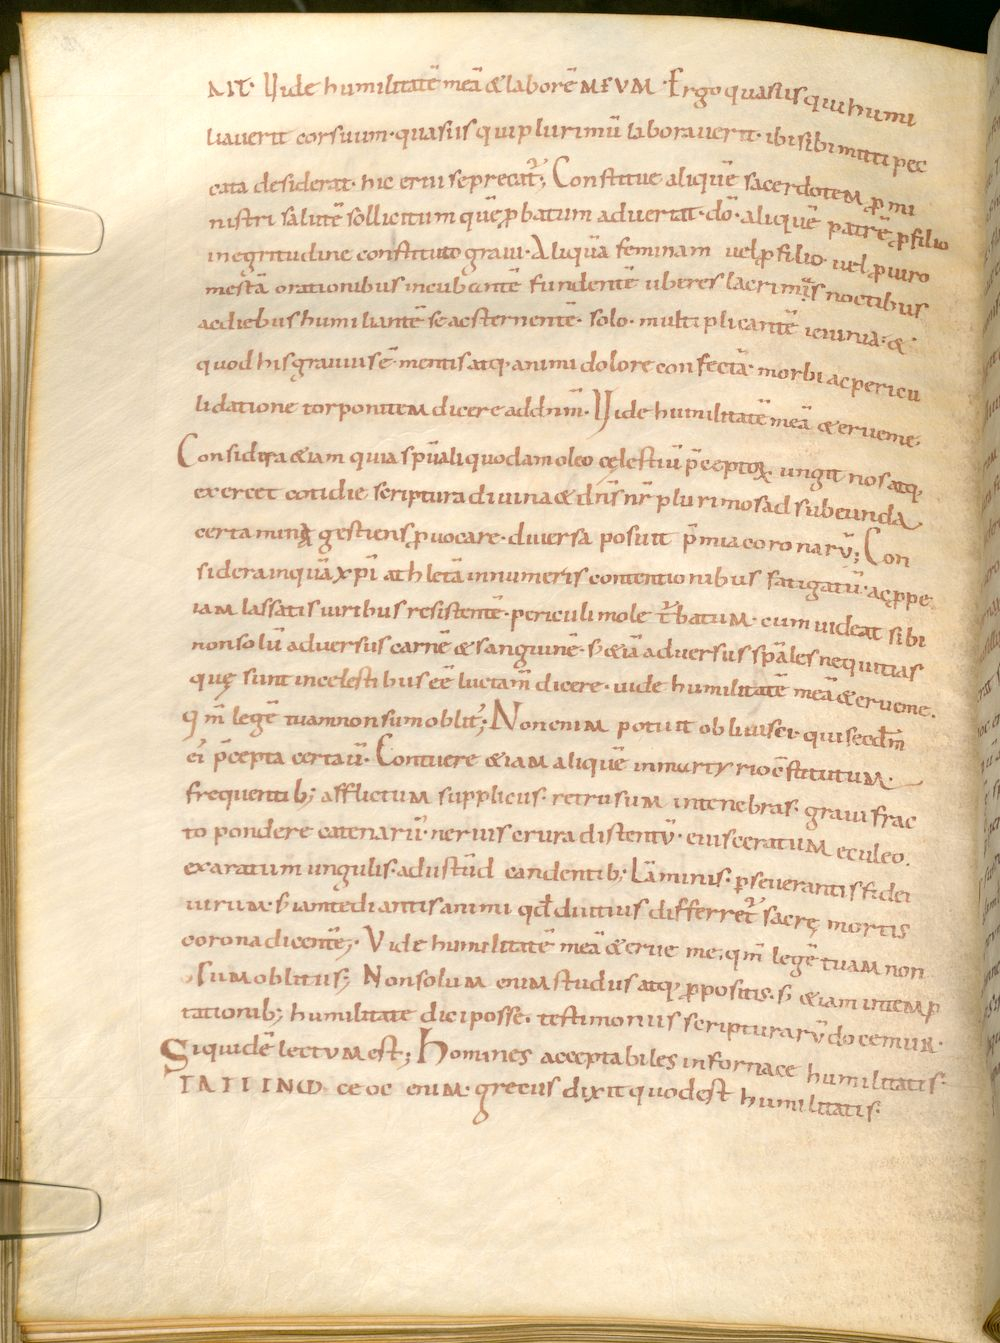 AIT· Vide humilitatē meā & laborē MEVM· Ergo quasi is qui humi
liaverit cor suum· quasi is qui plurimū laboraverit· ibi sibi mitti pec
cata desiderat· hic erui se precat᷒; Constitue aliquē sacerdoteM ꝓ mi
nistri salutē sollicitum quē ꝓbatum advertat· dō· aliquē patrē ꝓ filio
in egritudine constituto gravi· Aliquā feminam vel ꝓ filio· vel ꝓ viro
mestā orationibus incubantē fundentē uberes lacrimas noctibus
ac diebus humiliantē se ac sternentē· solo· multiplicantē ieiunia· &
quod his gravius ē mentis atq· animi dolore confectā· morbi ac pericu
li datione torpentem dicere ad dnm̄· Vide humilitatē meā & erue me·
Considera &iam quia spūali quodam oleo cęlestiū p̄ceptoꝝ· ungit nos atq·
exercet cotidie scriptura divina & dn̄s nr̄ plurimos ad subeunda
certamina gestiens ꝓvocare· diversa posuit p̄mia coronarū; Con
sidera inquā xp̄i athletā innumeris contentionibus fatigatū· ac ꝓpe
iam lassatis viribus resistentē· periculi mole t᷒batum· cum videat sibi
non solū adversus carnē & sanguinē· s; &iā adversus spāles nequitias
quę sunt in celestibus eē luctam̄ dicere· vide humilitatē meā & erue me·
qm̄ legē tuam non sum oblit᷒; Non enim potuit oblivisci· qui secdm̄
ei p̄cepta certaū· Contuere &iam aliquē in martyrio cōstitutum·
frequentib; afflictum suppliciis· retrusum in tenebras· gravi frac
to pondere catenarū· nervis crura distentū· evisceratum eculeo·
exaratum ungulis· adustūd candentib; Lāminis· ꝓseverantis fidei
virum· s; iam tediantis animi qd̄ diutius differret᷒ sacrę mortis
corona dicentē· Vide humilitatē meā & erue me· qm̄ legē tuam non
sum oblitus; Non solum enim studiis atq· ꝓpositis· s; &iam in temp
tationib; humilitate dici posse· testimoniis scripturarū docemur·
Siquidē lectum est; Homines acceptabiles in fornace humilitatis·